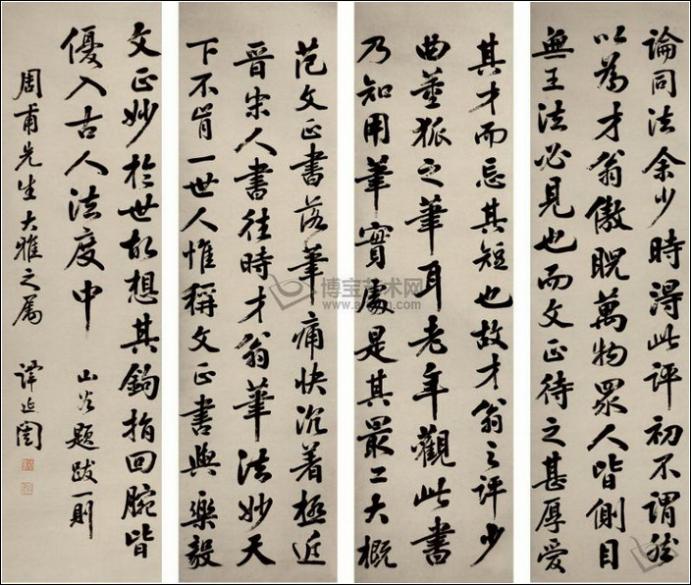 論同法余少時得此評初不謂然
以為才翁傲睨萬物眾人皆側目
無王法必見也而文正待之甚厚愛
其才而忘其短也故才翁之評少
曲董狐之筆耳老年觀此書
乃知用筆實處是其最工大概
范文正書落筆痛快沉著極近
晉宋人書往時才翁筆法妙天
下不肯一世人惟稱文正書與樂毅
文正妙於世故想其鉤指回腕皆
優入古人法度中 山谷題跋一則
周甫先生大雅之屬 譚延闓
博宝艺术网